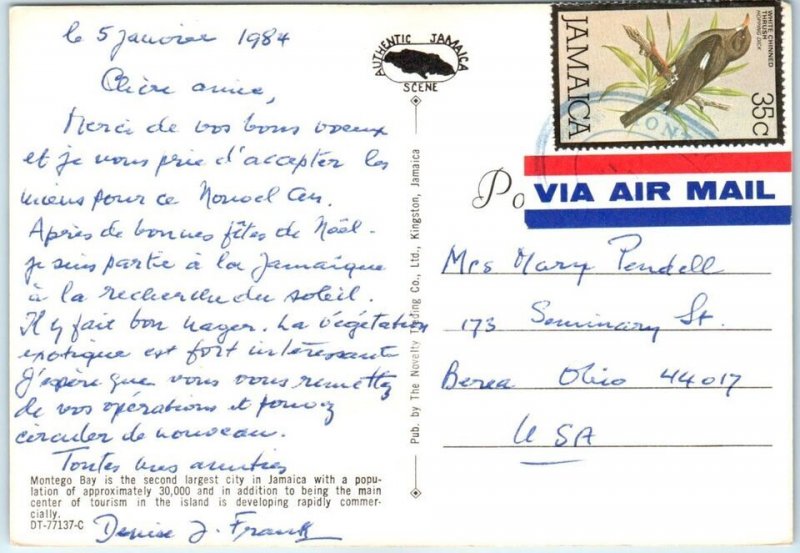 le 5 janvier 1984
Chère amie,
Merci de vos bons voeux
et je vous prie d'accepter les
miens pour ce Nouvel An.
Après de bonnes fêtes de Noël -
je suis partie à la Jamaïque
à la recherche du soleil.
Il y fait bon nager. La végétation
exotique est fort intéressante
J'espère que vous vous remettez
de vos opérations et pouvez
circuler de nouveau.
Toutes mes amitiés
Denise J. Frank
Montego Bay is the second largest city in Jamaica with a popu-
lation of approximately 30,000 and in addition to being the main
center of tourism in the island is developing rapidly commer-
cially.
DT-77137-C
AUTHENTIC JAMAICA
SCENE
Pub. by The Novelty Trading Co., Ltd., Kingston, Jamaica
WHITE-CHINNED
THRUSH
HOPPING DICK
JAMAICA
35c
Po
VIA AIR MAIL
Mrs Mary Pendell
173 Seminary St.
Berea Ohio 44017
USA